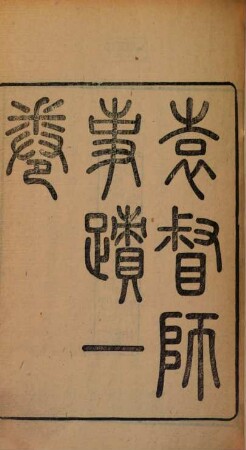 袁督師
事蹟一
卷